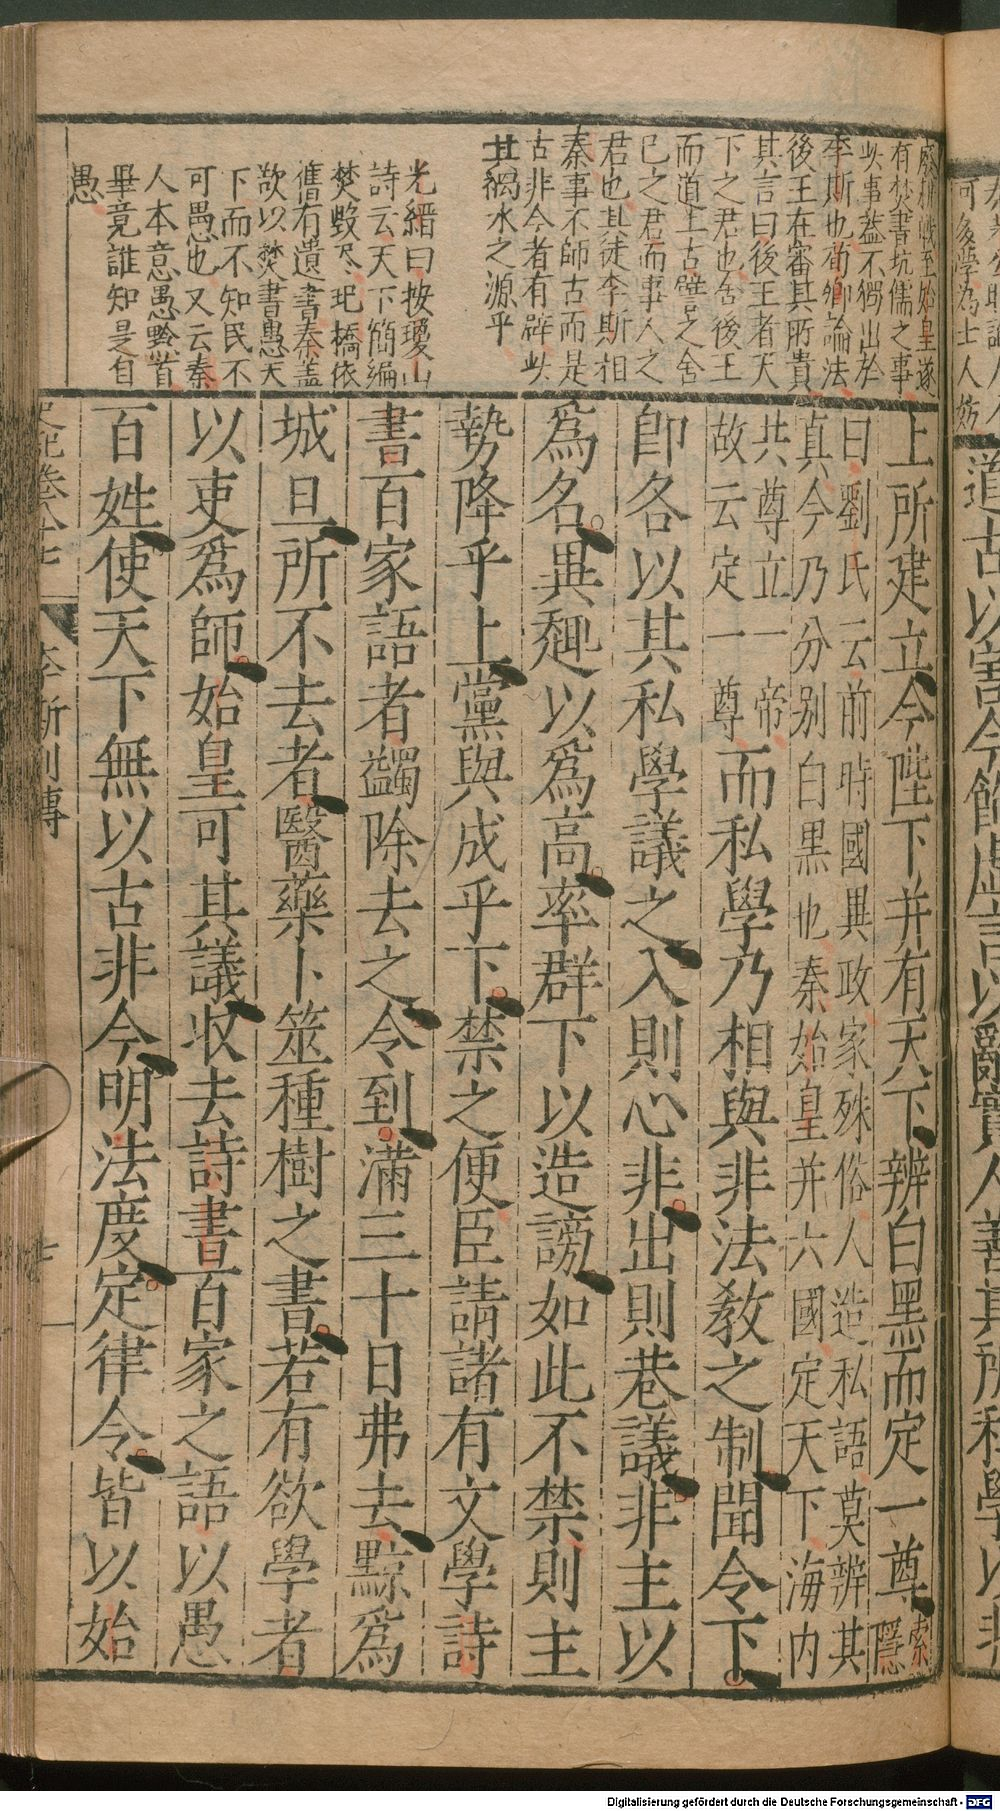 廢抑戰至始皇遂
有焚書坑儒之事
此事蓋不獨出於
李斯也荀卿論法
後王在審其所貴
其言曰後王者天
下之君也舍後王
而道上古譬之舍
已之君而事人之
君也其徒李斯相
秦事不師古而是
古非今者有辟此
其禍水之源乎
光縉曰按瓊山
詩云天下簡編
焚毀尽圯橋依
舊有遺書秦蓋
欲以焚書愚天
下而不知民不
可愚也又云秦
人本意愚黔首
畢竟誰知是自
愚
上所建立今陛下并有天下辨白黑而定一尊索隱
曰劉氏云前時國異政家殊俗人造私語莫辨其
真今乃分别白黑也秦始皇并六國定天下海内
共尊立一帝
故云定一尊
而私學乃相與非法教之制聞令下
即各以其私學議之入則心非出則巷議非主以
爲名異趣以爲高率群下以造謗如此不禁則主
勢降乎上黨與成乎下禁之便臣請諸有文學詩
書百家語者蠲除去之令到滿三十日弗去黥爲
城旦所不去者醫藥卜筮種樹之書若有欲學者
以吏爲師始皇可其議收去詩書百家之語以愚
百姓使天下無以古非今明法度定律令皆以始
史記卷八十七 李斯列傳 七
可後學為士人妨
道古以害今飾虛言以亂實人善其所私學以非
Digitalisierung gefördert durch die Deutsche Forschungsgemeinschaft - DFG